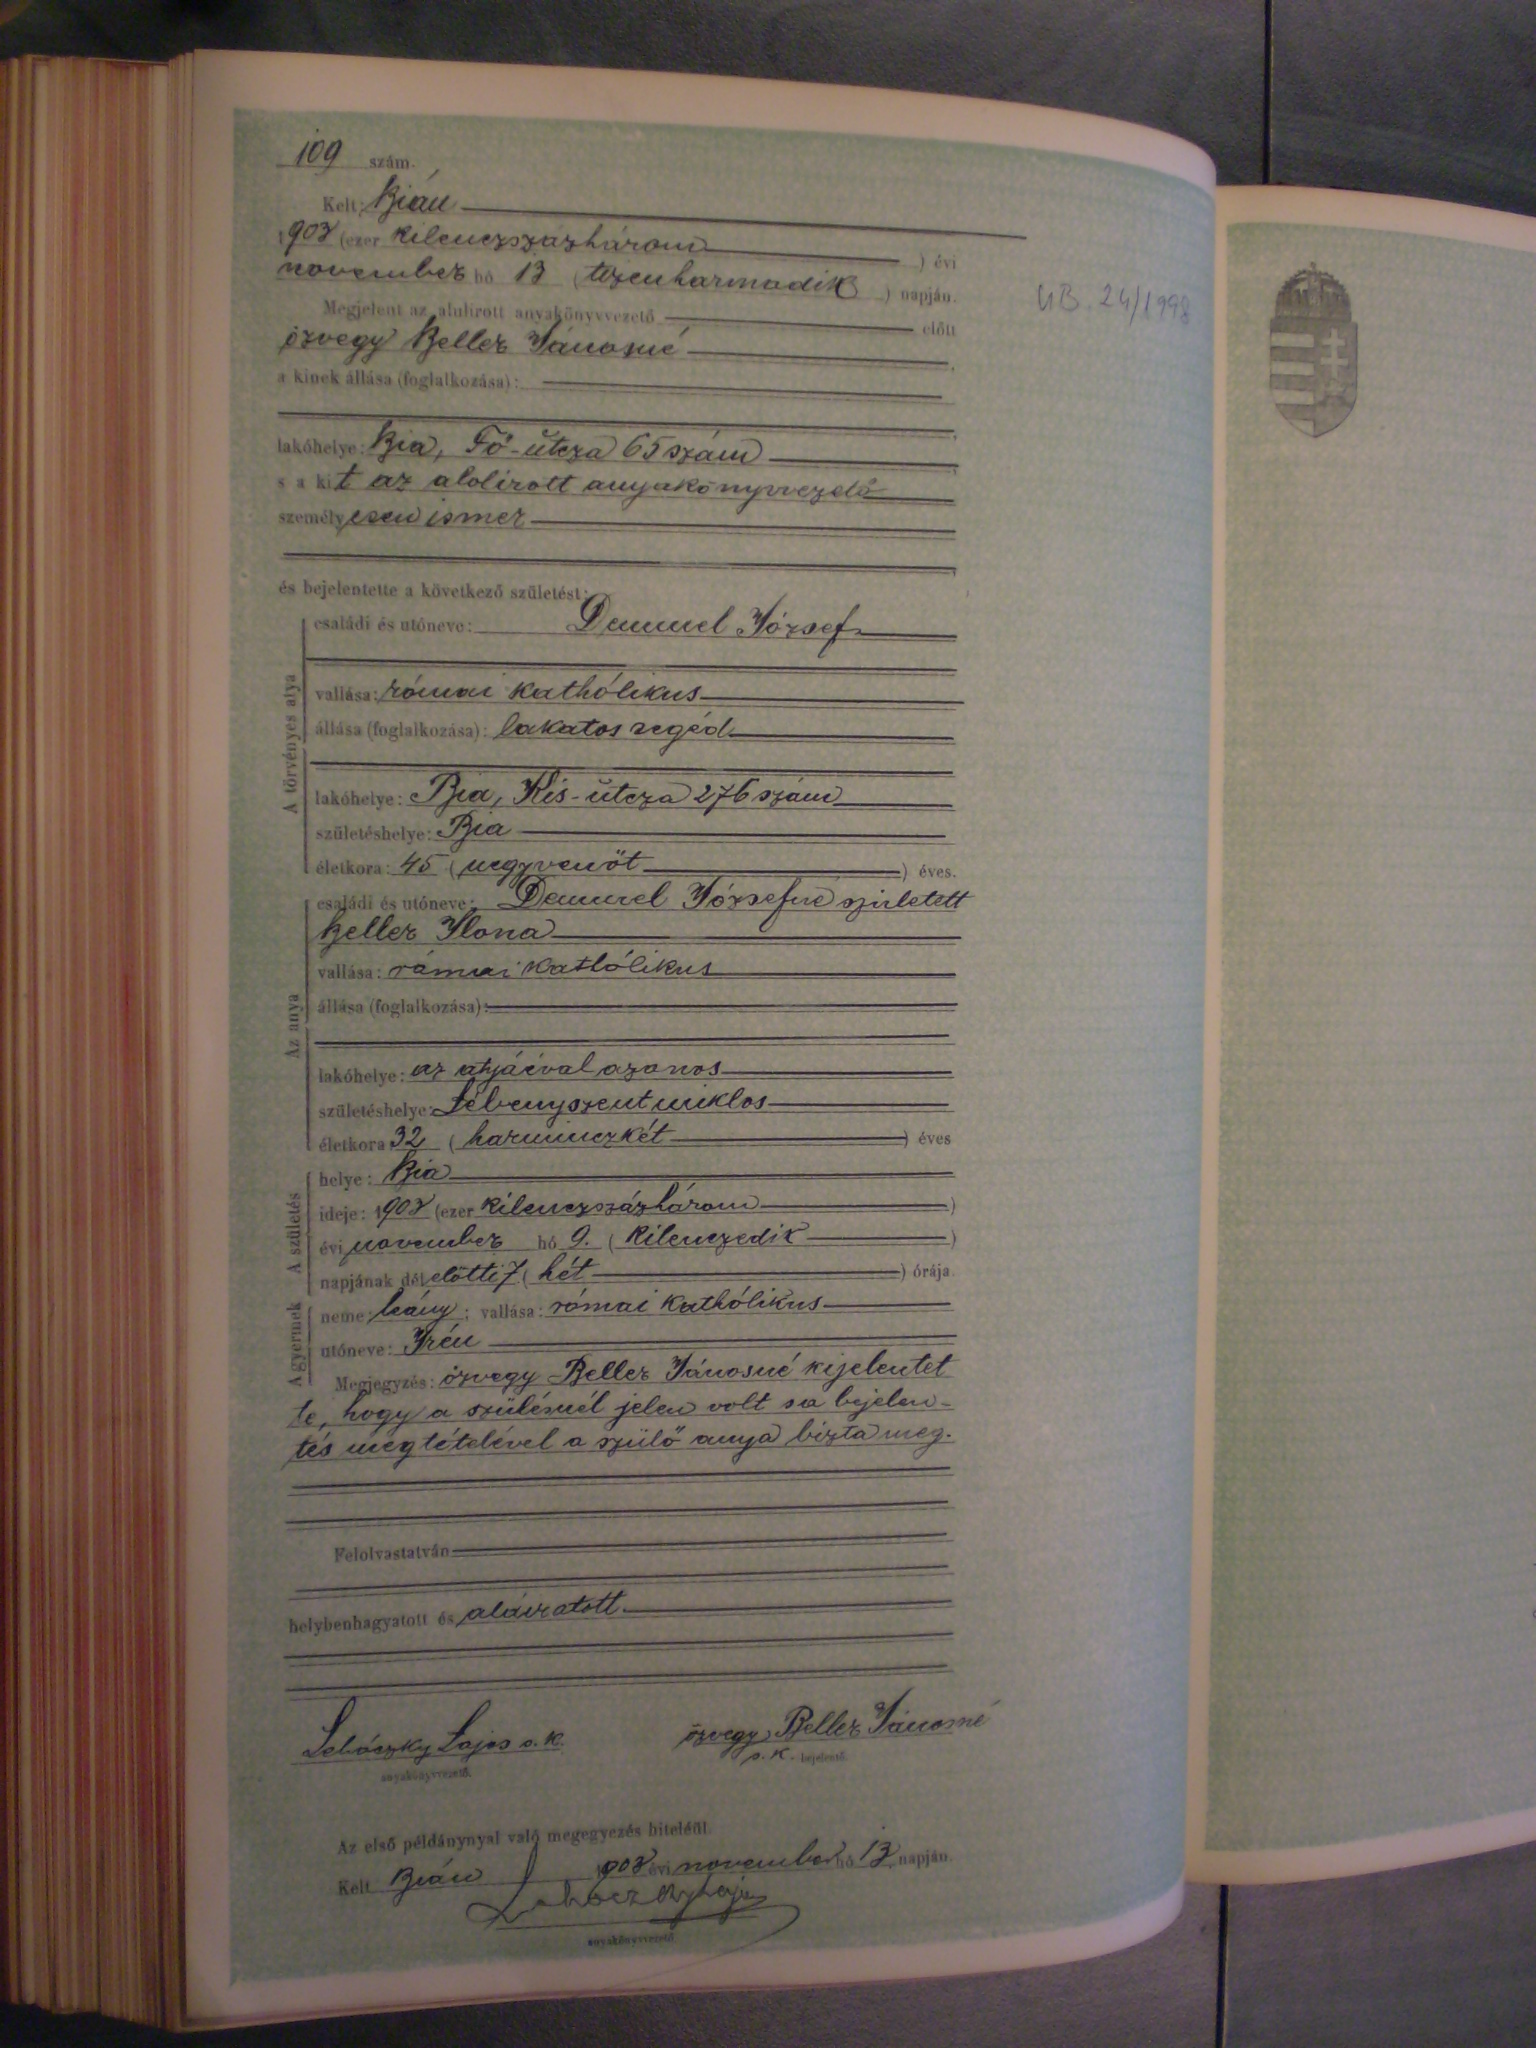 109 szám.
Kelt: Bián
1903 (ezer kilenczszázhárom) évi
november hó 13 (tizenharmadik) napján.
Megjelent az alulirott anyakönyvvezető előtt
özvegy Beller Jánosné
a kinek állása (foglalkozása):
lakóhelye: Bia, Fő-utcza 65 szám
s a kit az alolirott anyakönyvvezető
személyesen ismer
és bejelentette a következő születést:
A törvényes atya
családi és utóneve: Demmel József
vallása: római kathólikus
állása (foglalkozása): lakatos segéd
lakóhelye: Bia, Kis-utcza 276 szám
születéshelye: Bia
életkora: 45 (negyvenöt) éves.
Az anya
családi és utóneve: Demmel Józsefné született
Beller Ilona
vallása: római kathólikus
állása (foglalkozása):
lakóhelye: az atyáéval azonos
születéshelye: Lébenyszentmiklos
életkora 32 (harminczkét) éves
A születés
helye: Bia
ideje: 1903 (ezer kilenczszázhárom)
évi november hó 9. (kilenczedik)
napjának dél előtti 7 (hét) órája.
A gyermek
neme: leány; vallása: római kathólikus
utóneve: Irén
Megjegyzés: özvegy Beller Jánosné kijelentet
te, hogy a szülésnél jelen volt s a bejelen-
tés megtételével a szülő anya bizta meg.
Felolvastatván
helybenhagyatott és aláiratott.
Lehóczky Lajos s. k. özvegy Beller Jánosné
anyakönyvvezető. s. k. bejelentő.
Az első példánynyal való megegyezés hiteléül.
Kelt Bián 1903 évi november hó 13 napján.
Lehóczky Lajos
anyakönyvvezető.
UB. 24/1998